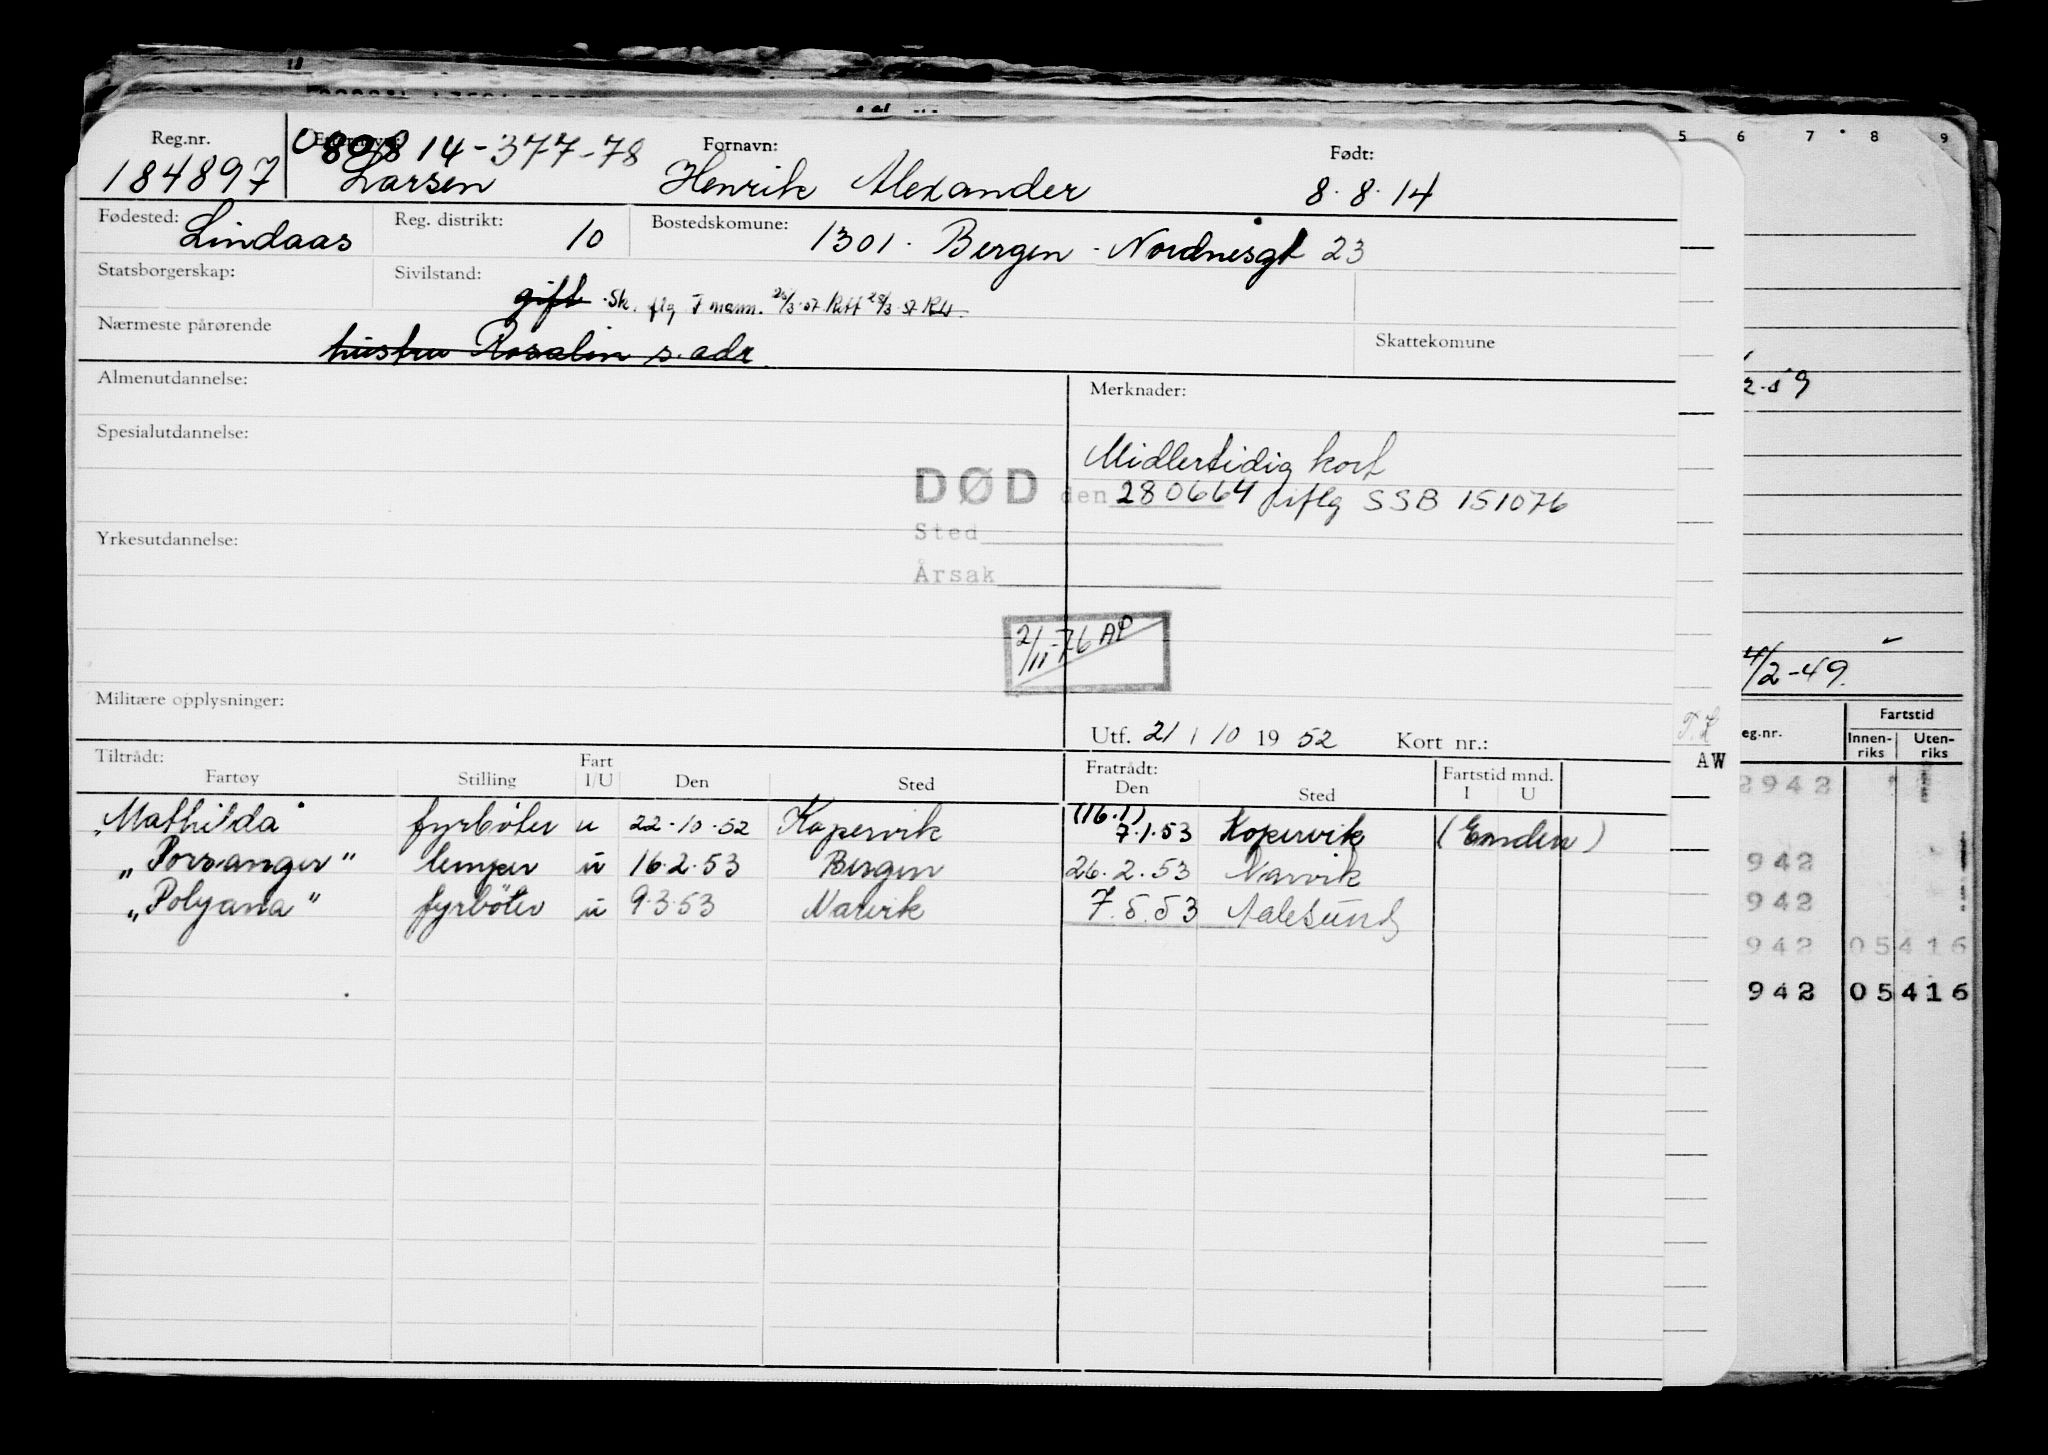 Reg.nr. Etternavn: Fornavn: Født:
080814-377-78
184897 Larsen Henrik Alexander 8.8.14
Fødested: Lindaas Reg. distrikt: 10 Bostedskomune: 1301. Bergen - Nordnesgt 23
Statsborgerskap: Sivilstand: gift Sk. flg F mann.
Nærmeste pårørende hustru Rosalin s. adr. Skattekomune
Almenutdannelse: Merknader:
Spesialutdannelse: Midlertidig kort
DØD den 280664 iflg SSB 151076
Sted
Yrkesutdannelse:
Årsak
2/11-76 AP
Militære opplysninger:
Utf. 21 / 10 19 52 Kort nr.:
Tiltrådt: Fratrådt:
Fartøy Stilling Fart I/U Den Sted Den Sted Fartstid mnd. I U
"Mathilda" fyrbøter u 22-10-52 Kopervik (16.1) 7.1.53 Kopervik (Emden)
"Porsanger" lemper u 16.2.53 Bergen 26.2.53 Narvik
"Polyana" fyrbøter u 9.3.53 Narvik 7.5.53 Aalesund
5 6 7 8 9
2-59
4/2-49.
T.L
AW
eg.nr. Fartstid
Innen-riks Uten-riks
2942
942
942
942 05416
942 05416